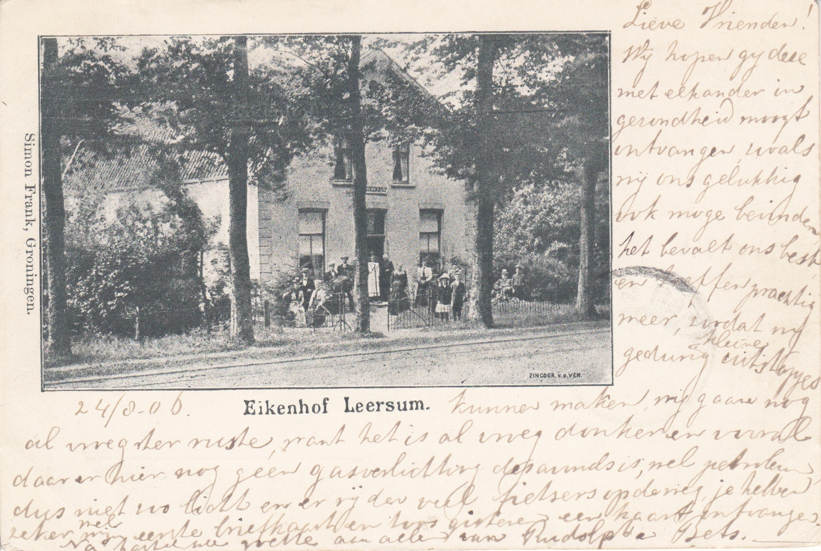 Lieve Vrienden!
Wij hopen gij deze
met elkander in
gezondheid moogt
ontvangen, zoals
wij ons gelukkig
ook moge bevinden
het bevalt ons best
en treffen prachtig
weer, zoodat wij
gedurig kleine uitstapjes
Simon Frank, Groningen.
ZINCOGR. v.d. VEN.
24/8-06.
Eikenhof Leersum.
kunnen maken, wij gaan nog
al vroeg ter ruste, want het is al vroeg donker en vooral
daar er hier nog geen gasverlichting des avonds is, wel petroleum,
dus niet zo licht en er rijden veel fietsers op de weg, je hebben
zeker mijn eerste briefkaart en ons gisteren een kaart ontvangen.
Na hartelijke groete aan alle van Rudolph Bets.